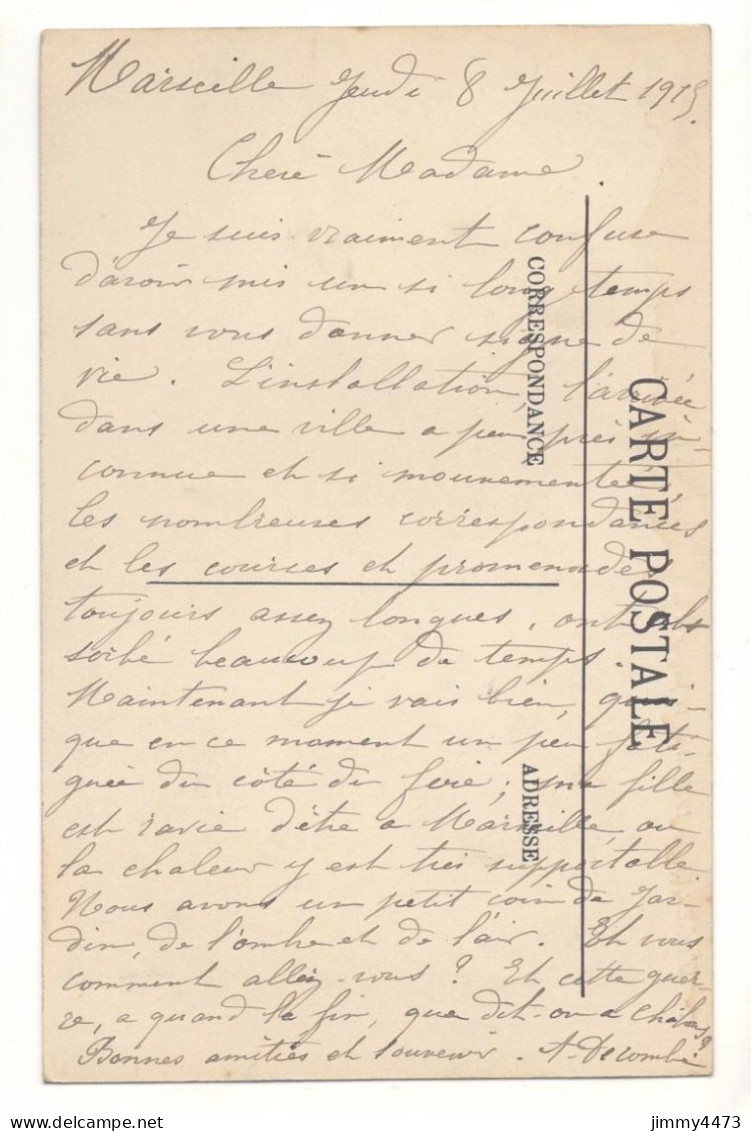 Marseille Jeudi 8 Juillet 1915.
Cheré Madame
Je suis vraiment confuse
d'avoir mis un si long temps
sans vous donner signe de
vie. L'installation, l'arrivée
dans une ville a peu près in-
connue et si mouvementée,
les nombreuses correspondances
et les courses et promenades
toujours assez longues, ont ab-
sorbé beaucoup de temps.
Maintenant je vais bien, quoi-
que en ce moment un peu fati-
guée du côté du foie; ma fille
est ravie d'être a Marseille, ou
la chaleur y est très supportable
Nous avons un petit coin de jar-
din, de l'ombre et de l'air. Et vous
comment allez-vous? Et cette guer-
re, a quand la fin, que dit-on a
Bonnes amitiés et souvenir. A. Decombe
CORRESPONDANCE
ADRESSE
CARTE POSTALE
jimmy4473